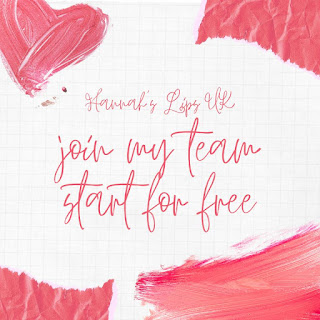 Hannah's Lips UK
join my team
start for free